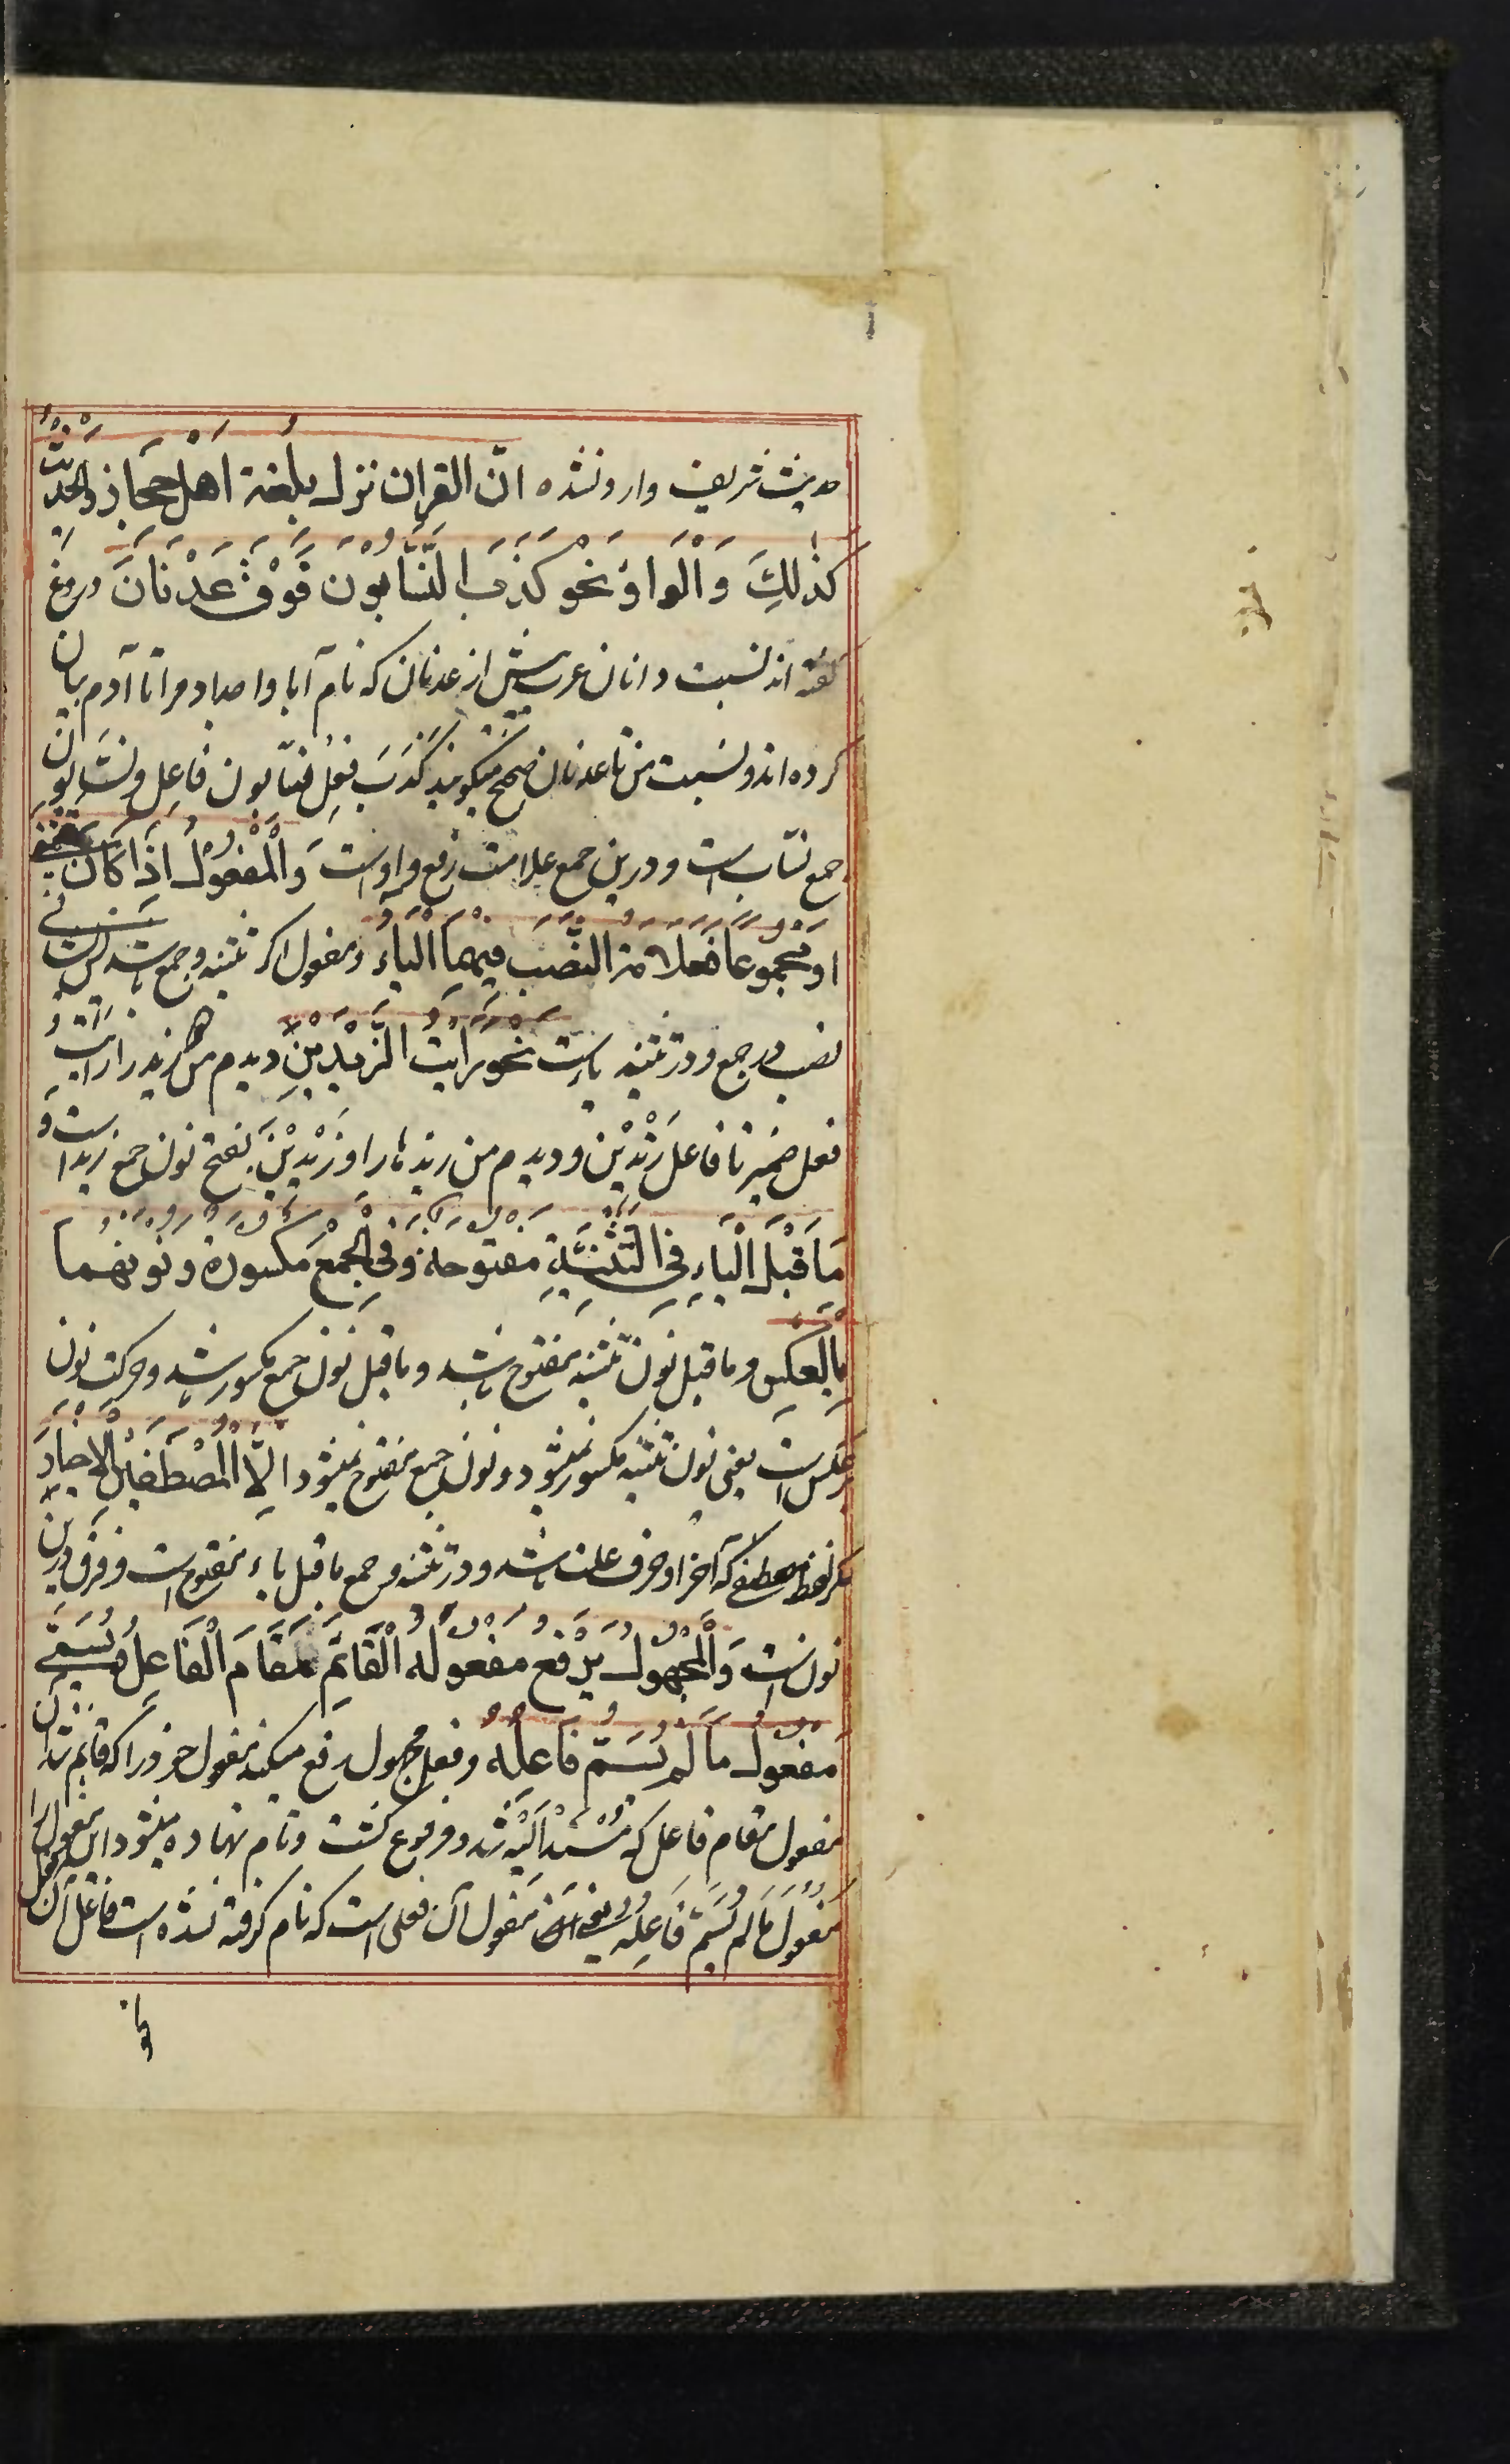 حدیث شریف وارد نشده انّ القران نزل بلغة اهل حجاز والحدیث
کذلِكَ وَالْوَاوُ نحْو كَذَبَ النَّسَّابُوْنَ فَوْقَ عَدْنَانَ دروغ
گفته اند نسبت دانان عرب پیش از عدنان که نام آبا و اجداد مرا تا آدم بیان
کرده اند و نسبت من تا عدنان صحیح میگویند کَذَبَ فعل نسّابون فاعل و نسّابون
جمع نسّاب است و درین جمع علامت رفع واو است وَالْمَفْعُوْلُ اِذَا كَانَ
اَوْ مَجْمُوْعًا فَعَلَامَة النَّصَبِ فِیْهِمَا الْیَاءُ و مفعول اکر تثنیه و جمع باشد
نصب در جمع و در تثنیه یا است نَحْوُ رَاَیْتُ الزَّیْدَیْنِ دیدم من زید را رایت
فعل ضمیر تا فاعل زَیْدَیْن و دیدم من زید ها را و زَیْدِیْنَ بفتح نون جمع زید است و
مَا قَبْلَ الْیَاءِ فِی التَّثْنِیَةِ مَفْتُوْحَةٌ وَفِی الْجَمْعِ مَکْسُوْرَةٌ وَنُوْنُهُمَا
بِالْعَکْسِ و ما قبل نون تثنیه مفتوح باشد و ما قبل نون جمع مکسور باشد و حرکت نون
بر عکس است یعنی نون تثنیه مکسور میشود و نون جمع مفتوح میشود اِلَّا الْمُصْطَفَیْنَ الْاَخْیَارَ
مکر لفظ مصطفی که آخر او حرف علت باشد و در تثنیه و جمع ما قبل یاء مفتوح است و فرق درین
نون است وَالْمَجْهُوْلُ یَرْفَعُ مَفْعُوْلَهُ الْقَائِمَ مَقَامَ الْفَاعِلِ وَیُسَمّٰی
مَفْعُوْلُ مَا لَمْ یُسَمَّ فَاعِلُهُ و فعل مجهول رفع میکند مفعول خود را که قایم شد آن
مفعول مقام فاعل که مُسْنَد اِلَیْه شد و مرفوع کشت و نام نهاده میشود این مفعول را
مفعول مَا لم یُسَمَّ فَاعِلُه یعنی مفعول آن فعلی است که نام کرفته نشده است فاعل آن